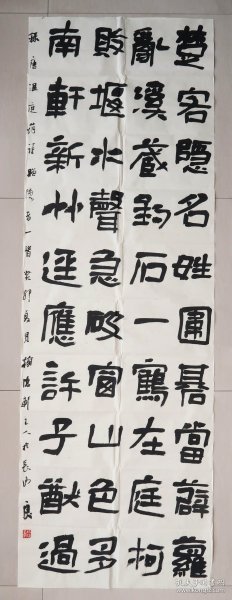 楚客隱名姓圍棊當薜蘿
亂溪藏釣石一鶴在庭柯
敗堰水聲急破窗山色多
南軒新竹逕應許子猷過
唐溫庭筠詩